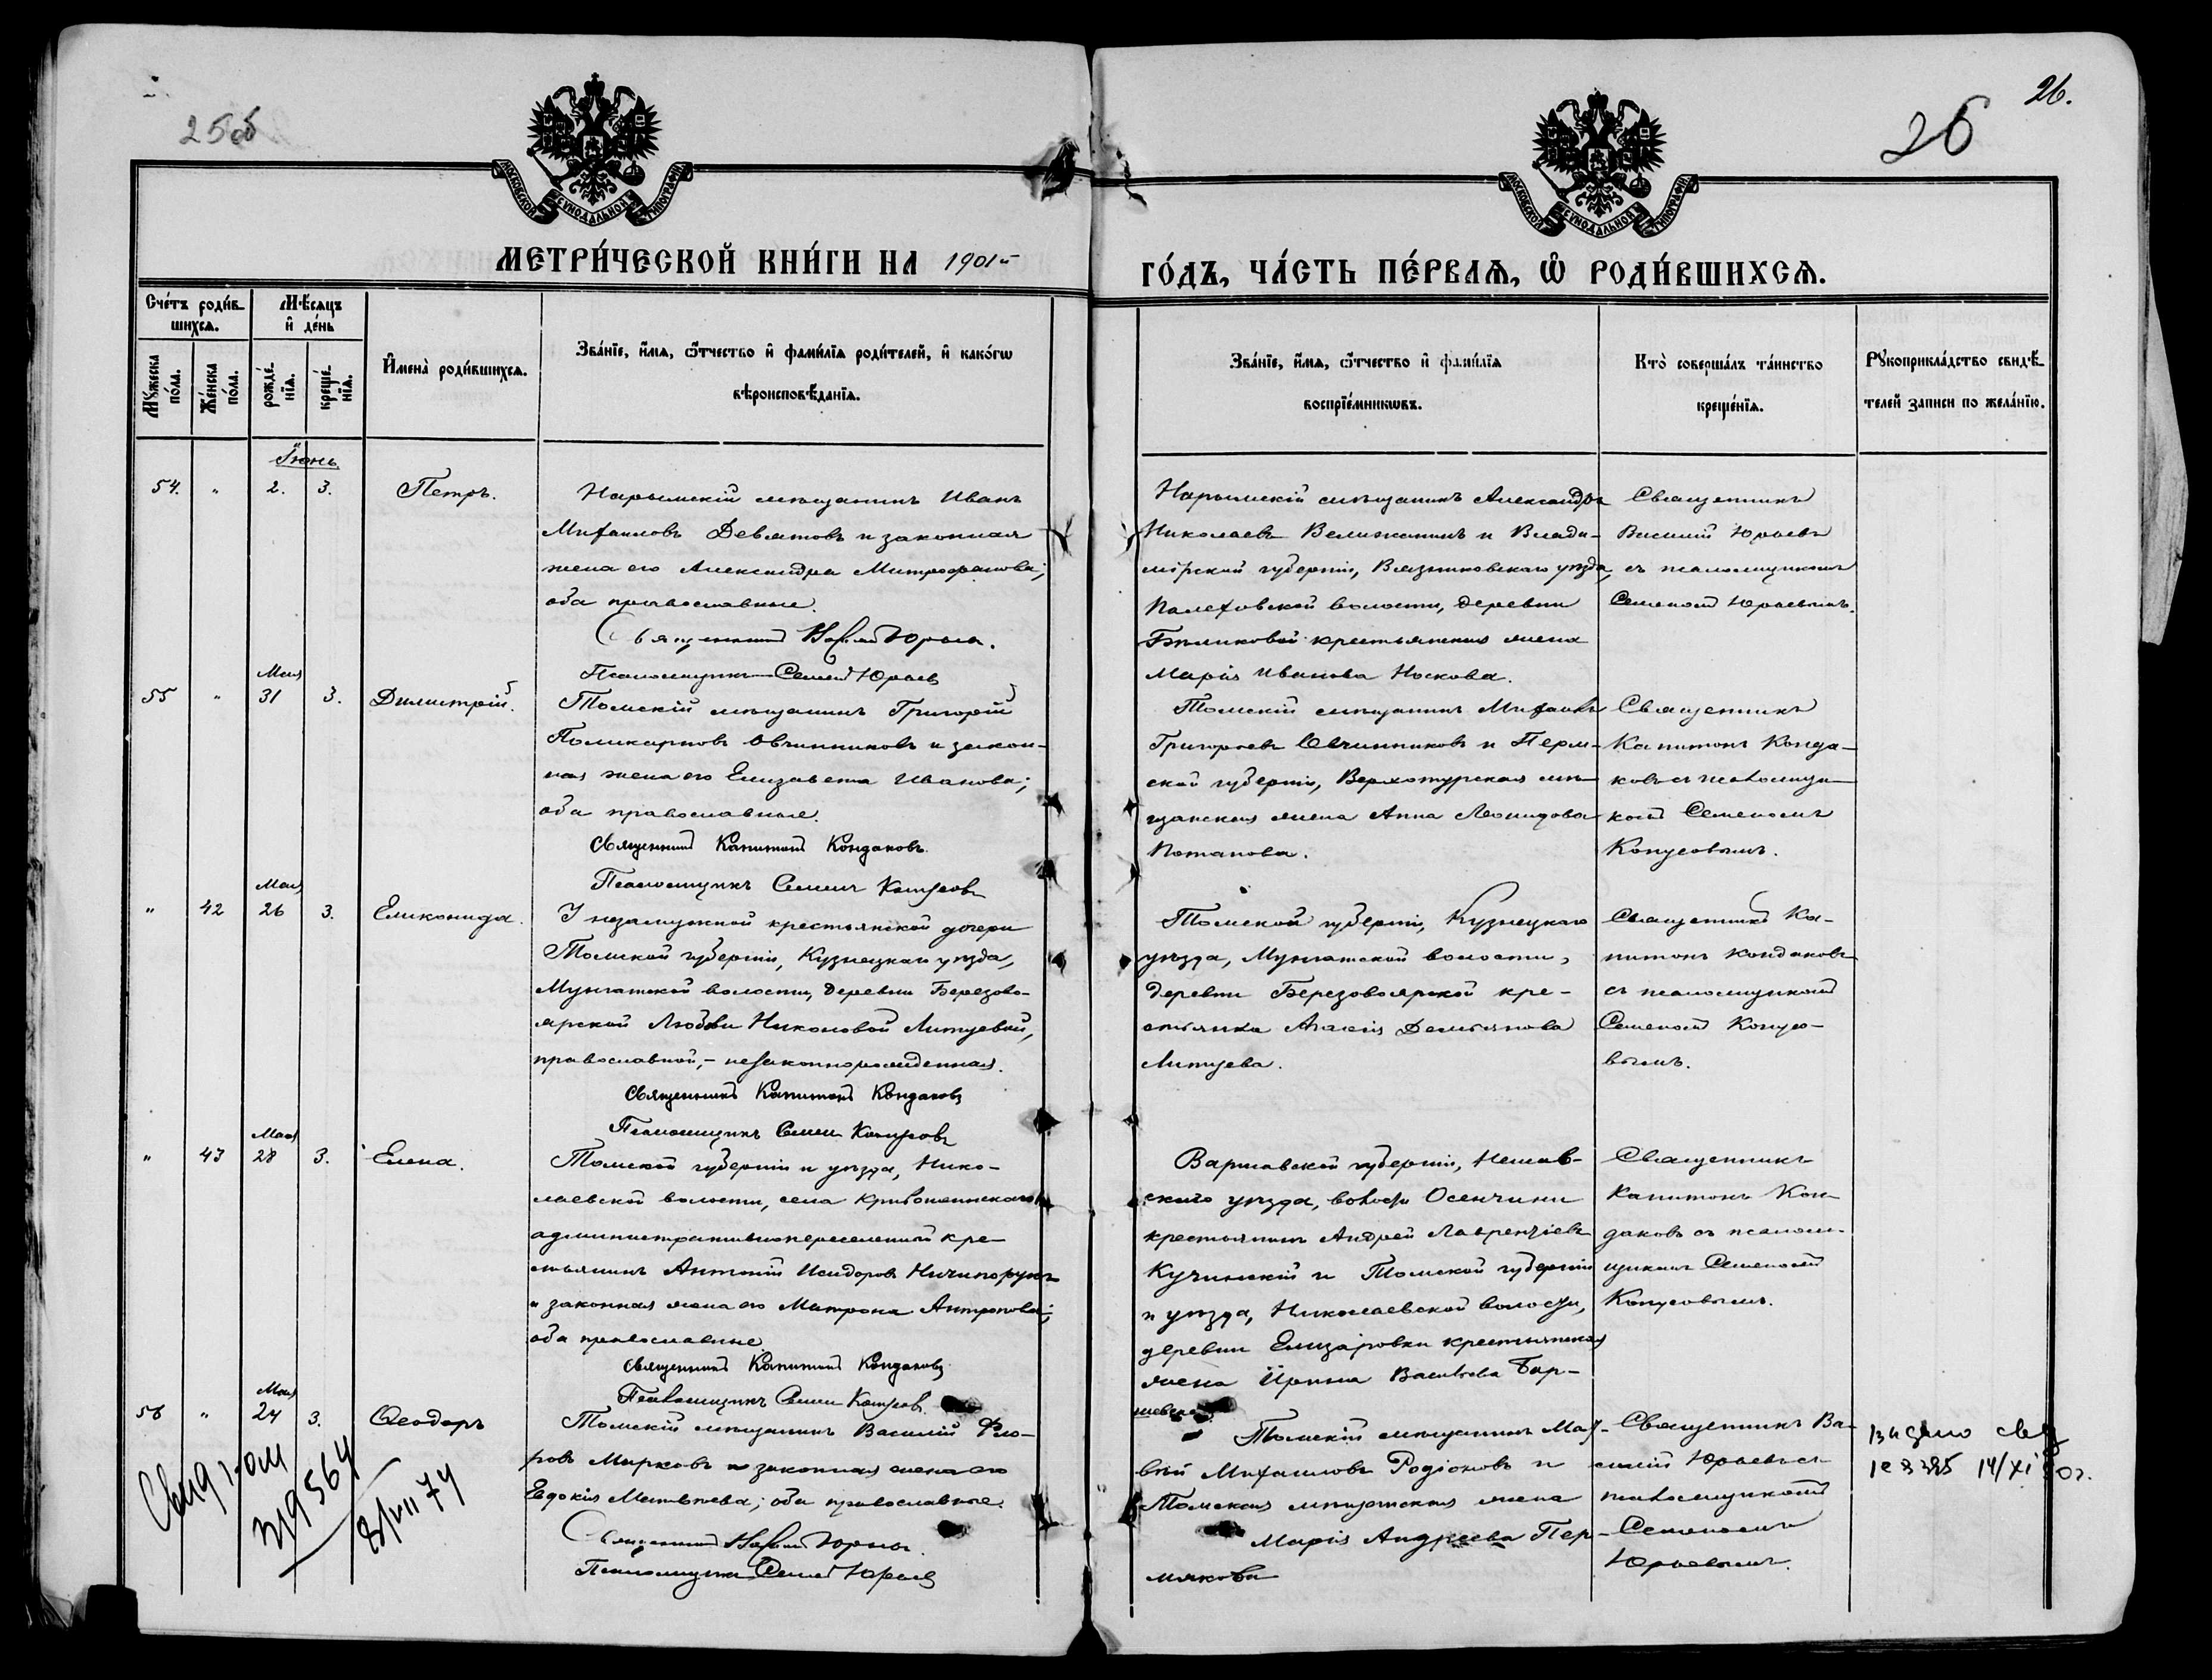 25об
26.
26
МОСКОВСКОЙ СѴНОДАЛЬНОЙ ТИПОГРАФІИ
МОСКОВСКОЙ СѴНОДАЛЬНОЙ ТИПОГРАФІИ
МЕТРИ́ЧЕСКОЙ КНИ́ГИ НА 1901й
ГО́ДЪ, ЧА́СТЬ ПЕ́РВАѦ, Ѡ҆ РОДИ́ВШИХСѦ.
Сче́тъ роди́вшихсѧ.
Мꙋ́жеска по́ла.
Же́нска по́ла.
Мѣ́сѧцъ и҆ де́нь
рожде́нїѧ.
креще́нїѧ.
И҆мена̀ роди́вшихсѧ.
Зва́нїе, и҆́мѧ, ѻ҆́тчество и҆ фамѝлїѧ роди́телей, и҆ како́гѡ
вѣроисповѣ́данїѧ.
Зва́нїе, и҆́мѧ, ѻ҆́тчество и҆ фами́лїѧ
воспрїе́мникѡвъ.
Кто̀ соверша́лъ та́инство
креще́нїѧ.
Рꙋкоприкла́дство свидѣ́-
телей записи по жела́нїю.
Іюнь
54. " 2. 3. Петръ.
Нарымскій мѣщанинъ Иванъ
Михаиловъ Девятовъ и законная
жена его Александра Митрофанова;
оба православные.
Священникъ Василій Юрьевъ.
Псаломщикъ Семенъ Юрьевъ
Нарымскій мѣщанинъ Александръ
Николаевъ Вележанинъ и Влади-
мірской губерніи, Вязниковскаго уѣзда,
Палеховской волости, деревни
Бѣликовой крестьянская жена
Марія Иванова Носкова.
Священникъ
Василій Юрьевъ
съ псаломщикомъ
Семеномъ Юрьевымъ.
Мая
55 " 31 3. Димитрій.
Томскій мѣщанинъ Григорій
Поликарповъ Овчинниковъ и закон-
ная жена его Елизавета Иванова;
оба православные.
Священникъ Капитонъ Кондаковъ.
Псаломщикъ Семенъ
Томскій мѣщанинъ Михаилъ
Григорьевъ Овчинниковъ и Перм-
ской губерніи, Верхотурская мѣ-
щанская жена Анна Леонидова
Потапова.
Священникъ
Капитонъ Конда-
ковъ съ псаломщи-
комъ Семеномъ
Мая
" 42 26 3. Еликонида.
У незамужной крестьянской дочери
Томской губерніи, Кузнецкаго уѣзда,
Мунгатской волости, деревни Березово-
ярской Любови Никоновой
православной, - незаконнорожденная.
Священникъ Капитонъ Кондаковъ
Псаломщикъ Семенъ
Томской губерніи, Кузнецкаго
уѣзда, Мунгатской волости,
деревни Березовоярской кре-
стьянка Демьянова
Священникъ Ка-
питонъ Кондаковъ
съ псаломщикомъ
Семеномъ
вымъ.
Мая
" 43 28 3. Елена.
Томской губерніи и уѣзда, Нико-
лаевской волости, села Кривошеинскаго
административнопереселенный кре-
стьянинъ Антоній Исидоровъ Ничипорукъ
и законная жена его Матрона Антропова;
оба православные.
Священникъ Капитонъ Кондаковъ
Псаломщикъ Семенъ
Варшавской губерніи, Нешав-
скаго уѣзда, волости Осенчины
крестьянинъ Андрей Лаврентіевъ
Кучинскій и Томской губерніи
и уѣзда, Николаевской волости,
деревни Елизаровки крестьянская
жена Ирина Васильева Бар-
шевская.
Священникъ
Капитонъ Кон-
даковъ съ псалом-
щикомъ Семеномъ
Мая
56 " 24 3. Ѳеодоръ
Томскій мѣщанинъ Василій Фло-
ровъ Марковъ и законная жена его
Евдокія Матвѣева; оба православные.
Священникъ Василій Юрьевъ.
Псаломщикъ Семенъ Юрьевъ
Томскій мѣщанинъ
Михаиловъ Родіоновъ и
Томская мѣщанская жена
Марія Андреева Пер-
мякова
Священникъ Ва-
силій Юрьевъ съ
псаломщикомъ
Семеномъ
Юрьевымъ.